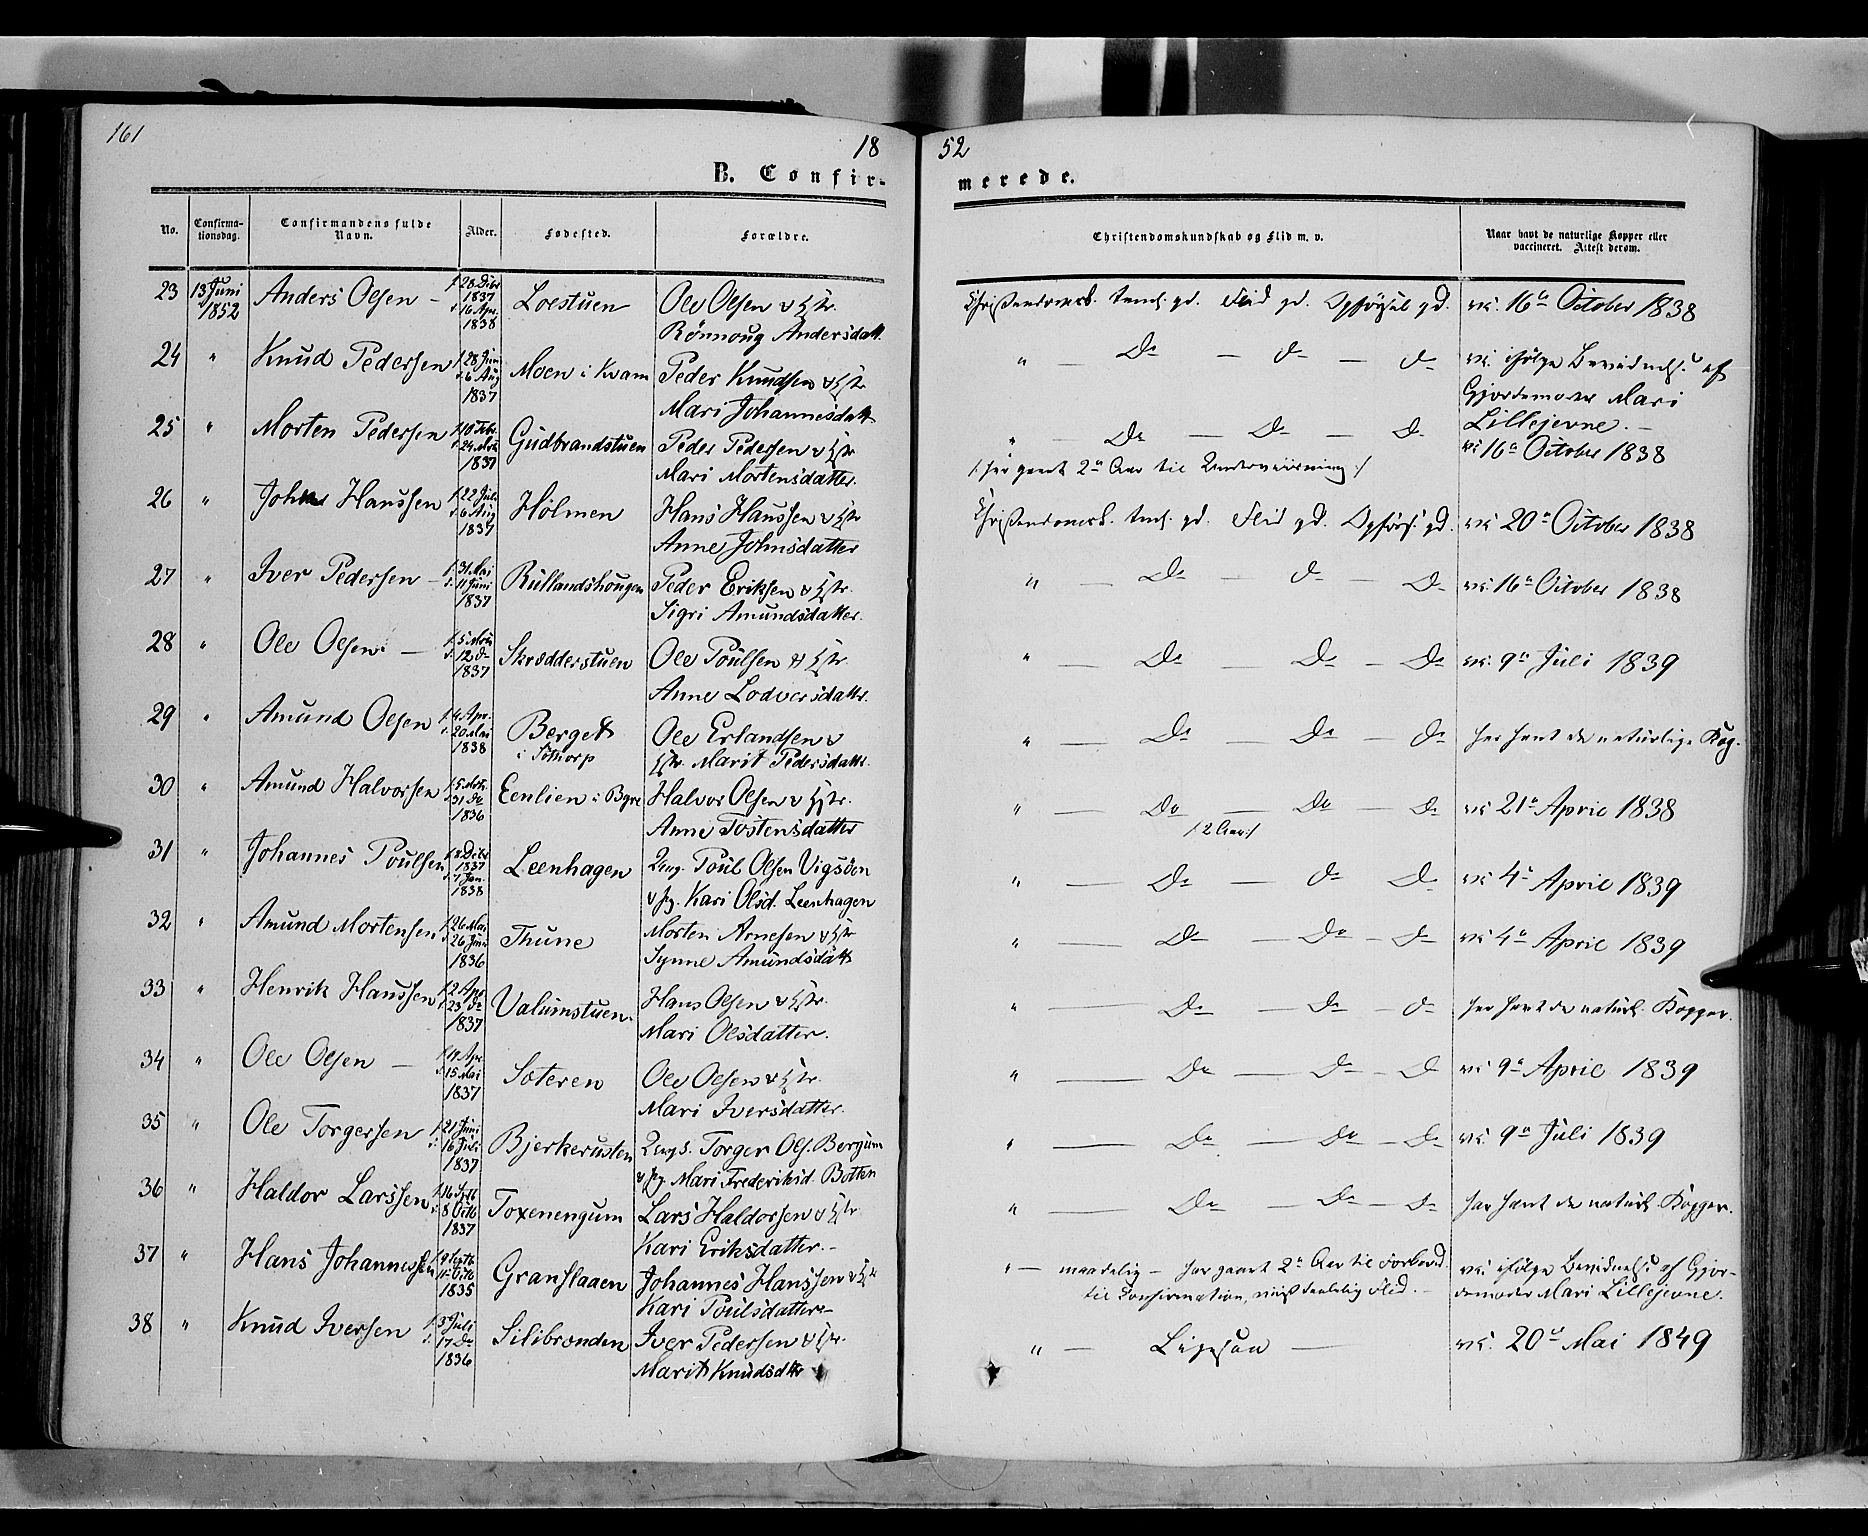 161
18
52
B. Confir-
merede.
No.
Confirma-
tionsdag.
Confirmandens fulde
Navn.
Alder.
Fødested.
Forældre.
Christendomskundskab og Flid m. v.
Naar havt de naturlige Kopper eller
vaccineret. Attest derom.
23 13 Juni 1852 Anders Olsen — f. 28 Dcbr 1837 d. 16 Apr. 1838 Loestuen Ole Olsen & Hstr.
Rönnoug Andersdatt.
Christendomsk. gd. Flid gd. Opförsel gd. vc. 16de October 1838
24 " Knud Pedersen f. 28 Jun d. 6 Aug 1837 Moen i Kvam Peder Knudsen & Hstr
Mari Johannesdatt.
" — Do — do — do vc. ifølge af
Gjordemoder Mari
Lillejevne. —
25 " Morten Pedersen f. 10 Febr. d. 24 1837 Gudbrandstuen Peder Pedersen & Hstr
Mari Mortensdatter.
" — Do — Do — Do vc 16de October 1838
/: har gaaet 2de Aar til Underviisning :/
26 " Johns Hanssen f. 22 Juli d. 6 Aug 1837 Holmen Hans Hanssen & Hstr
Anne Johnsdatter
Christendomsk. gd. Flid gd. Opförs. gd. vc 20de October 1838
27 " Iver Pedersen — f. 31 Mai d. 11 Juni 1837 Rullandshougen Peder Eriksen & Hstr.
Sigri Amundsdatter.
" — Do — do — Do vc. 16de October 1838
28 " Ole Olsen — f. 5 d. 12 do 1837 Skrædderstuen Ole Poulsen & Hstr
Anne Lodversdattr.
" — Do — Do — Do vc. 9de Juli 1839
29 " Amund Olsen f. 4 Apr. d. 20 Mai 1838 Berget
i Sothorp Ole Erlandsen &
Hstr. Marit Pedersdattr.
" — Do — Do — do har havt de naturlige Kop.
30 " Amund Halvorsen f. 5 d. 31 Do 1836 Eenlien i Halvor Olsen & Hstr.
Anne Tostensdatter
" — Do — Do — do vc 21de April 1838
/: 2 Aar :/
31 " Johannes Poulsen f. Dcbr 1837 d. 7 Jan. 1838 Leenhagen Ung. Poul Olsen Vigsöen
& Pg. Kari Olsd. Leenhagen
" — Do — do Do vc 4de April 1839
32 " Amund Mortensen f. 26 Mai d. 26 Juni 1836 Thune Morten Arnesen & Hstr
Synne Amundsdatt
" — Do — Do — do vc 4de April 1839
33 " Henrik Hanssen f. 2 Apr d. 23 do 1837 Valumstuen. Hans Olsen & Hstr.
Mari Olsdatter.
" — Do — Do — do har havt de naturl. Kopper.
34 " Ole Olsen — f. 11 Apr d. 15 Mai 1837 Soteren Ole Olsen & Hstr.
Mari Iversdatter.
" — Do — Do — D vc 9de April 1839
35 " Ole Torgersen f. 21 Juni d. 16 Juli 1837 Bjerkerusten Ungs. Torger Ols. Borgum
& Pg. Mari Frederiksd. Botten
" — Do — Do — do vc. 9de Juli 1839
36 " Haldor Larssen f. 16 Spt d. 8 Octb 1837 Toxenengum Lars Haldorsen & Hstr
Kari Eriksdatter. —
" — Do — Do — do har havt de naturl. Kopper.
37 " Hans Johannessen f. 9 Septb d. 11 Octb 1835 Granslaaen Johannes Hanssen & Hstr
Kari Poulsdatter —
" — maadelig — har gaaet 2de Aar til Forbered.
til Confirmation, Flid. —
vc. ifølge af Gjor-
demoder Mari Lillejevne.
38 " Knud Iversen f. 3 Juli d. 17 Do 1836 Silibrönden Iver Pedersen & Hstr.
Marit Knudsdttr
" — Ligesaa — vc. 20de Mai 1849